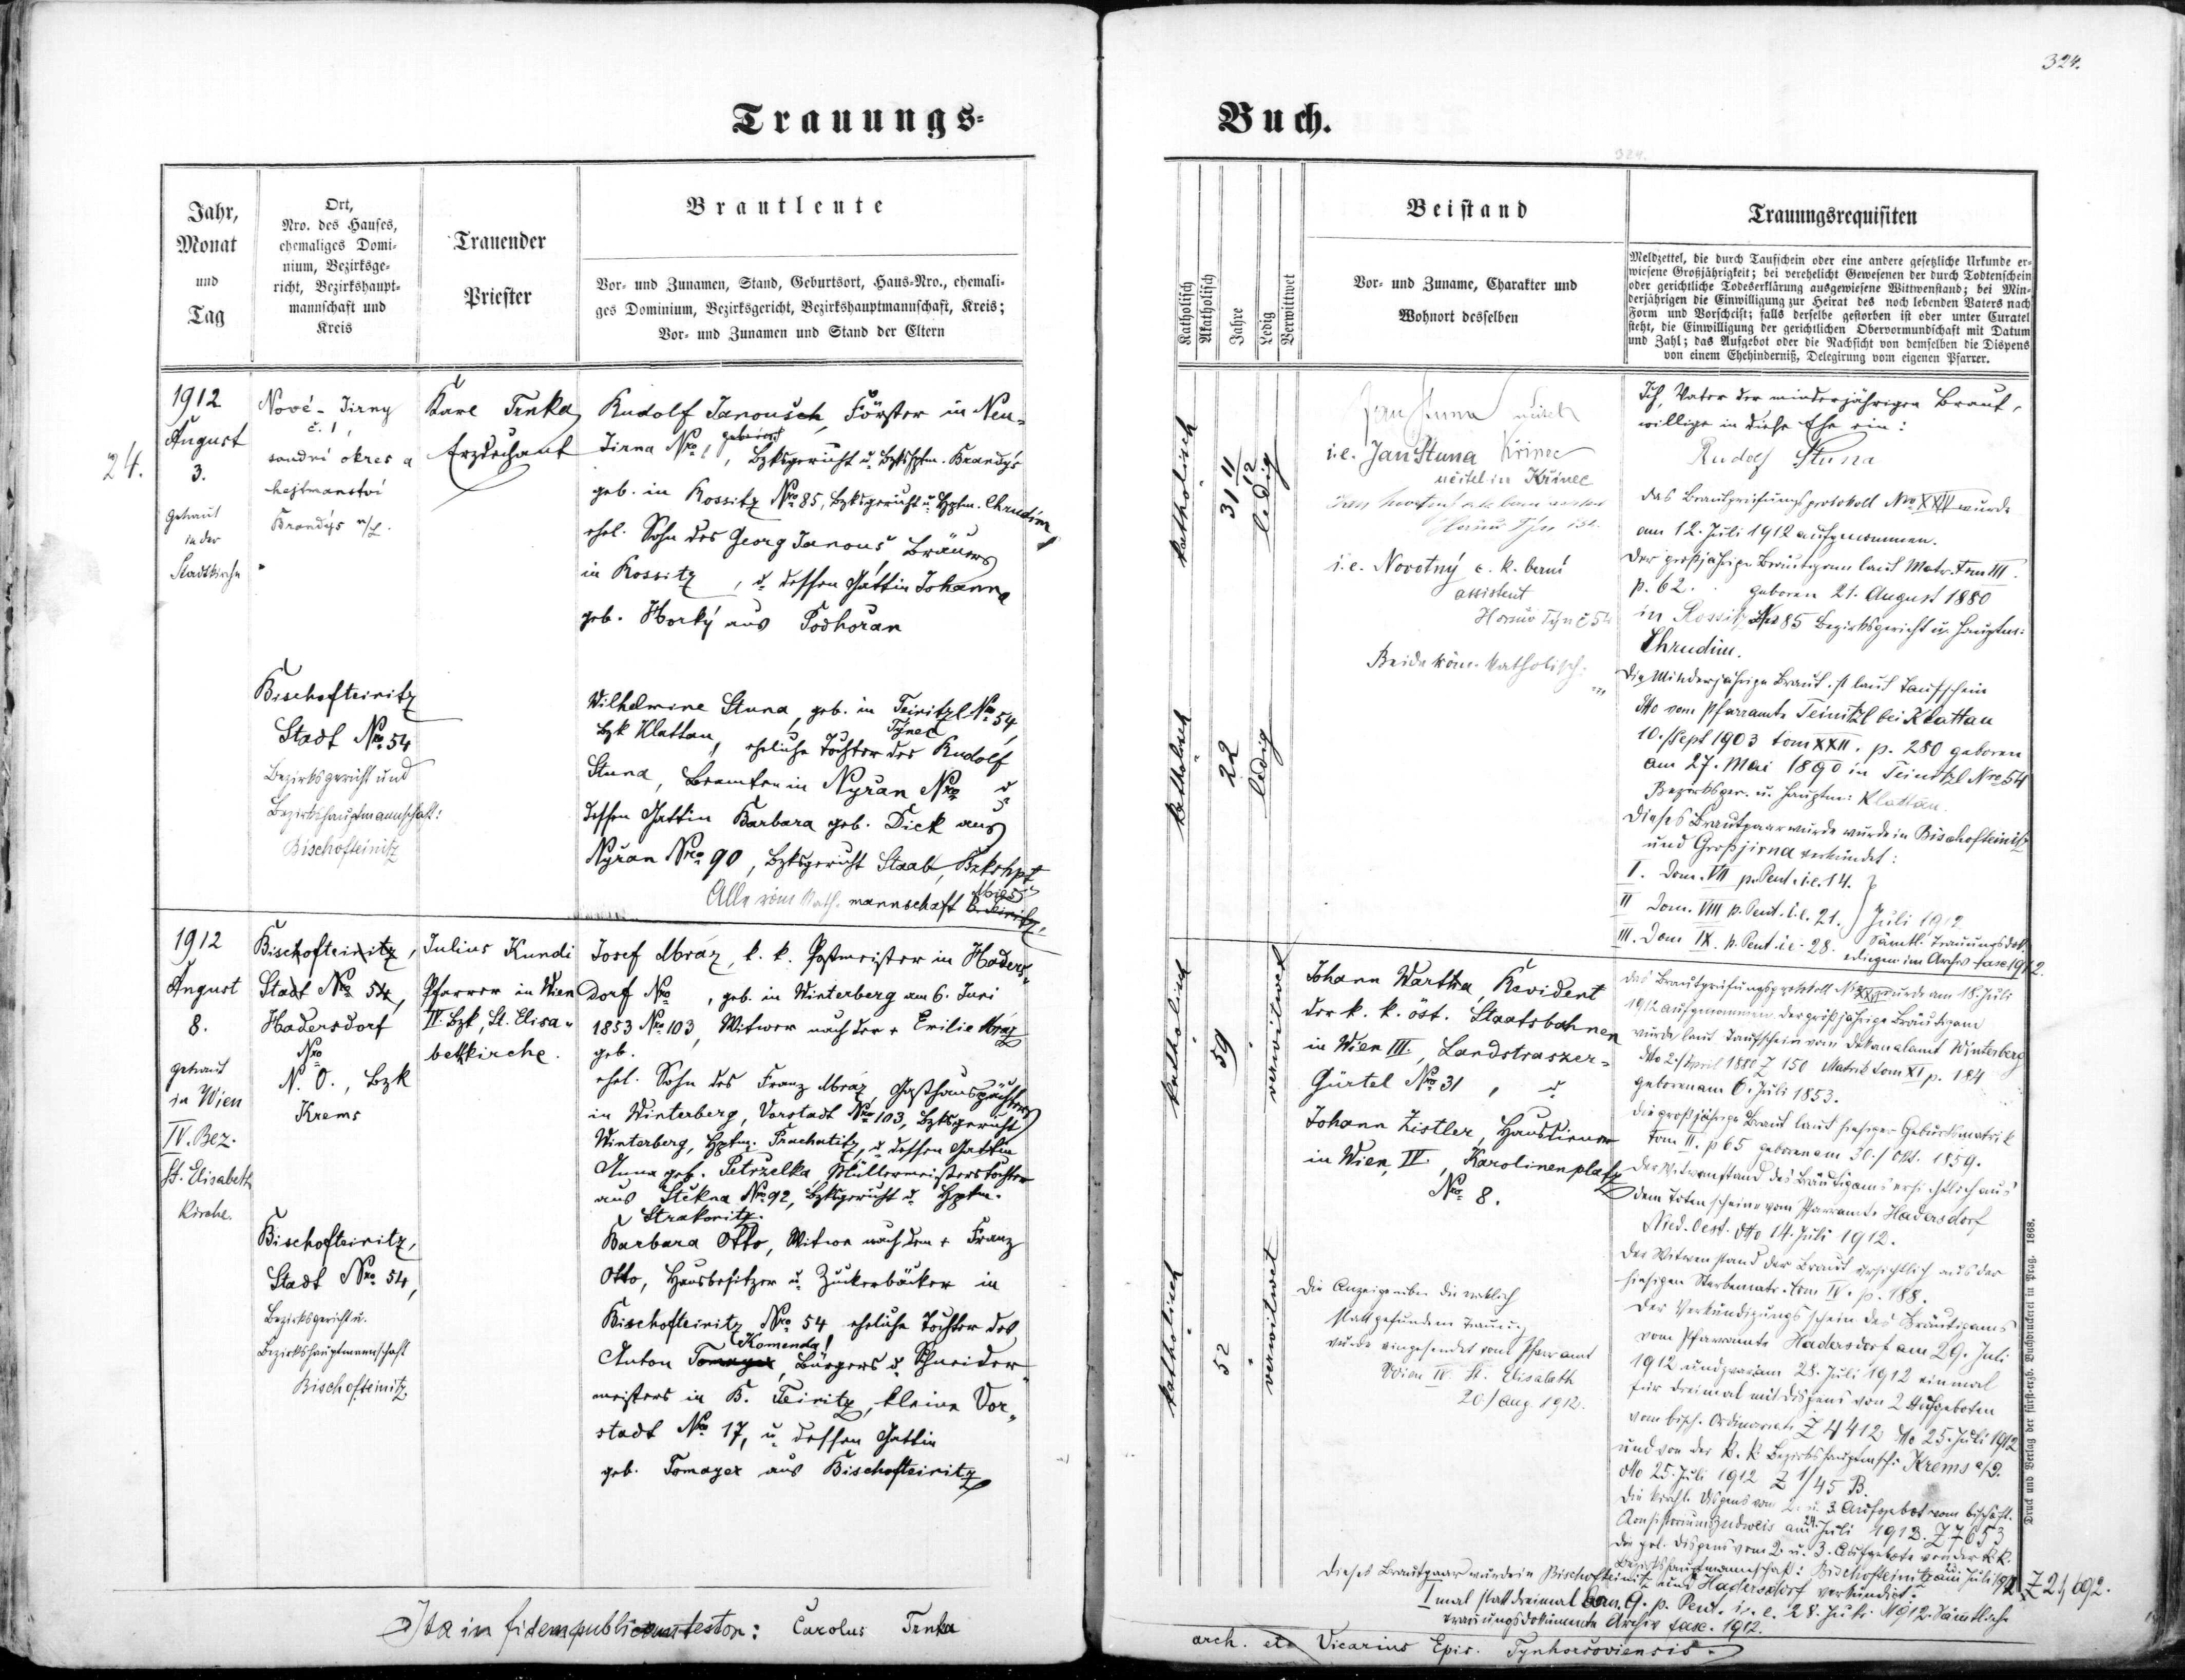 324.
Trauungs-
Buch.
Jahr,
Monat
und
Tag
Ort,
Nro. des Hauses,
ehemaliges Domi-
nium, Bezirksge-
richt, Bezirkshaupt-
mannschaft und
Kreis
Trauender
Priester
Brautleute
Vor- und Zunamen, Stand, Geburtsort, Haus-Nro., ehemali-
ges Dominium, Bezirksgericht, Bezirkshauptmannschaft, Kreis;
Vor- und Zunamen und Stand der Eltern
Katholisch
Akatholisch
Jahre
Ledig
Verwittwet
Beistand
Vor- und Zuname, Charakter und
Wohnort desselben
Trauungsrequisiten
Meldzettel, die durch Taufschein oder eine andere gesetzliche Urkunde er-
wiesene Großjährigkeit; bei verehelicht Gewesenen der durch Todtenschein
oder gerichtliche Todeserklärung ausgewiesene Wittwenstand; bei Min-
derjährigen die Einwilligung zur Heirat des noch lebenden Vaters nach
Form und Vorschrift; falls derselbe gestorben ist oder unter Curatel
steht, die Einwilligung der gerichtlichen Obervormundschaft mit Datum
und Zahl; das Aufgebot oder die Nachsicht von demselben die Dispens
von einem Ehehinderniß, Delegirung vom eigenen Pfarrer.
24.
1912
August
3.
Getraut
in der
Stadtkirche
Nové-Jirny
č. 1,
soudní okres a
hejtmanství
Brandýs n/L.
Karl Trnka
Erzdechant
Rudolf Janousch, Förster in Neu-
Jirna Nro 1, Bzksgericht u. Bzkshptm. Brandýs
geb. in Rossitz Nro 85, Bzksgericht u. Hptm. Chrudim
ehel. Sohn des Georg Janouš, Bräuers
in Rossitz, u. dessen Gattin Johanna
geb. Horký aus Podhořan
katholisch
31 11/12
ledig
i.e. Jan Stuna Křinec
učitel in Křinec
i.e. Novotný c. k. berní
assistent
Horšův Týn č 54
Beide röm. katholisch.
Ich, Vater der minderjährigen Braut,
willige in diese Ehe ein:
Rudolf Stuna
Das Brautprüfungsprotokoll Nro XXIV wurde
am 12. Juli 1912 aufgenommen.
Der großjährige Bräutigam laut Matr. Tom III.
p. 62. geboren 21. August 1880
in Rossitz Nro 85 Bezirksgericht u. Hauptm:
Chrudim.
Bischofteinitz
Stadt Nro 54
Bezirksgericht und
Bezirkshauptmannschaft:
Bischofteinitz
Wilhelmine Stuna, geb. in Teinitzl Nro 54,
Týnec
Bzk Klattau, eheliche Tochter des Rudolf
Stuna, Beamten in Nyřan Nro u.
dessen Gattin Barbara geb. Dick aus
Nyřan Nro 90, Bzksgericht Staab, Bzkshpt
Mies
Alle röm. kath. mannschaft B. Teinitz.
katholisch
22
ledig
Die Minderjährige Braut ist laut Taufschein
dto vom Pfarramte Teinitzl bei Klattau
10./Sept 1903 tom XXII. p. 280 geboren
am 27. Mai 1890 in Teinitzl Nro 54
Bezirksger. u. Hauptm: Klattau.
Dieses Brautpaar wurde wurde in Bischofteinitz
und Großjirna verkündet:
I. Dom. VII p. Pent. i.e. 14.
II Dom. VIII p. Pent. i.e. 21. Juli 1912
III. Dom IX. p. Pent. i.e. 28. Sämtl. Trauungsdok.
erliegen im Archiv fasc. 1912.
1912
August
8.
getraut
in Wien
IV. Bez.
St. Elisabeth
Kirche.
Bischofteinitz,
Stadt Nro 54,
Hadersdorf
Nro
N. Ö., Bzk
Krems
Julius Kundi
Pfarrer in Wien
IV. Bzk, St. Elisa-
bethkirche.
Josef Mráz, k. k. Postmeister in Haders-
dorf Nro , geb. in Winterberg am 6. Juni
1853 Nro 103, Witwer nach der + Emilie Mráz
geb.
ehel. Sohn des Franz Mráz, Gasthauspächters
in Winterberg, Vorstadt Nro 103, Bzksgericht
Winterberg, Hptm. Prachatitz, u. dessen Gattin
Anna geb. Petrželka Müllermeisterstochter
aus Štěkna Nro 92, Bzksgericht u. Hptm.
Strakonitz.
katholisch
59
verwitwet
Johann Wartha, Revident
der k. k. öst. Staatsbahnen
in Wien III., Landstraszer-
Gürtel Nro 31, u.
Johann Zistler, Hausdiener
in Wien, IV., Karolinenplatz
Nro. 8.
Das Brautprüfungsprotokoll Nro XXV wurde am 18. Juli
1912 aufgenommen. Der großjährige Bräutigam
wurde laut Taufschein vom Dekanalamt Winterberg
dto 2./April 1880 Z 150 Matrik tom XI p. 184
geboren am 6. Juli 1853.
Die großjährige Braut laut hiesiger Geburtsmatrik
tom II. p 65 geboren am 30./Okt. 1859.
Der Witwerstand des Bräutigams ersichtlich aus
dem Totenscheine vom Pfarramte Hadersdorf
Nied. Oest. dto 14. Juli 1912.
Der Witwenstand der Braut ersichtlich aus der
hiesigen Sterbematr. tom IV. p. 188.
Der Verkündigungsschein des Bräutigams
vom Pfarramte Hadersdorf am 29. Juli
1912 und zwar am 28. Juli 1912 einmal
für dreimal mit Dispens von 2 Aufgeboten
vom bisch. Ordinariate Z 4412 dto 25. Juli 1912
und von der k. k. Bezirkshauptmsch: Krems a/D.
dto 25. Juli 1912 Z 1/45 B.
Die kirchl. Dispens vom 2. u. 3. Aufgebot vom bischöfl.
Konsistorium Budweis am 24. Juli 1912. Z 7653
Die pol. Dispens vom 2. u. 3. Aufgebote von der k. k.
Bezirkshauptmannschaft: Bischofteinitz am Juli 1912 Z 21692.
Bischofteinitz,
Stadt Nro. 54,
Bezirksgericht u.
Bezirkshauptmannschaft
Bischofteinitz.
Barbara Otto, Witwe nach dem + Franz
Otto, Hausbesitzer u. Zuckerbäcker in
Bischofteinitz Nro 54 eheliche Tochter des
Komenda!
Anton Tomayer, Bürgers u. Schneider-
meisters in B. Teinitz, kleine Vor-
stadt Nro 17, u. dessen Gattin
geb. Tomayer aus Bischofteinitz
katholisch
52
verwitwet
Die Anzeige über die wirklich
stattgefundene Trauung
wurde eingesendet vom Pfarramt
Wien IV. St. Elisabeth
20./Aug. 1912.
Dieses Brautpaar wurde in Bischofteinitz und Hadersdorf verkündet:
I mal statt dreimal Dom. 9. p. Pent. i. e. 28. Juli 1912. Sämtliche
Trauungsdokumente Archiv fasc. 1912.
Ita in fidem publicam testor: Carolus Trnka
arch. etc Vicarius Epis. Tynhorsoviensis.
Druck und Verlag der fürst-erzb. Buchdruckerei in Prag. 1868.